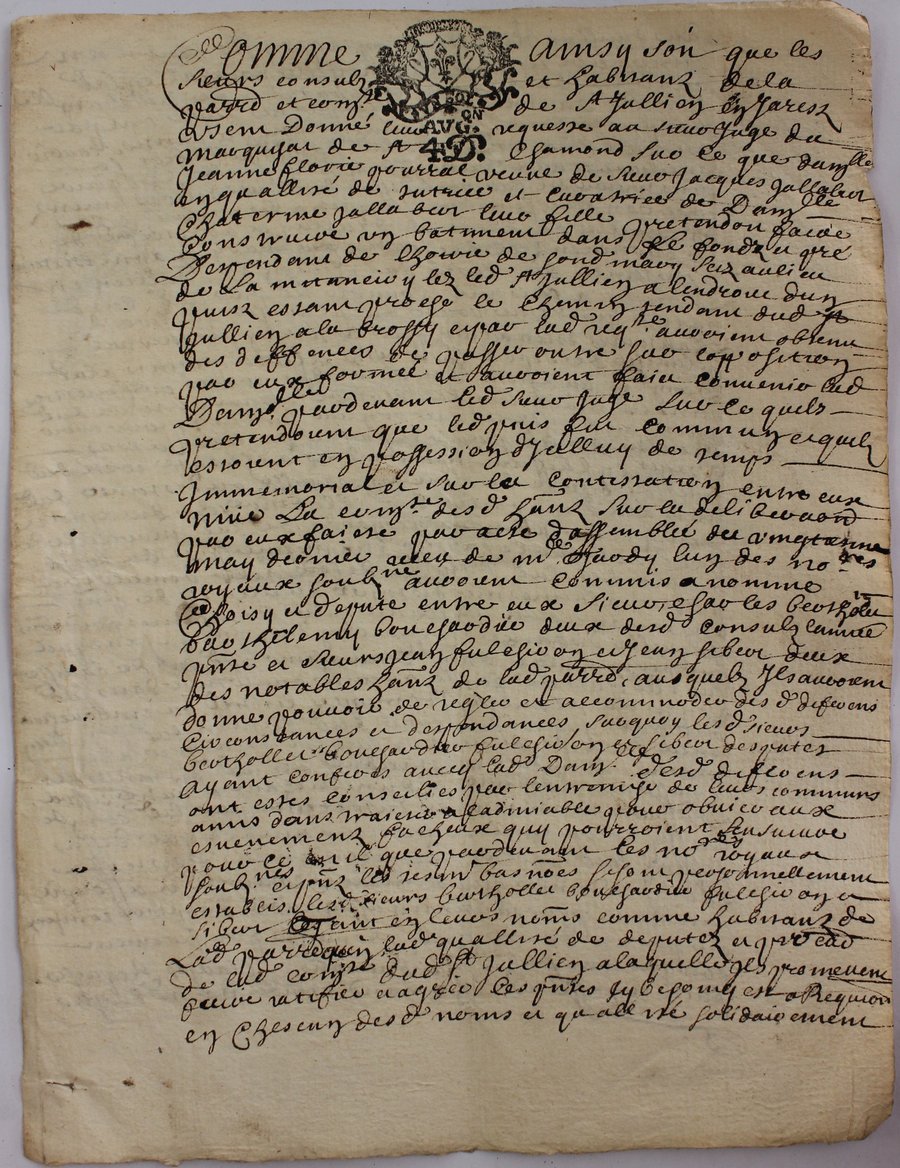 Comme ainsy soit que les
sieurs consulz et habitans de la
parr֩ et com.te de St Jullien en Jarestz
LYON
AVG.
4D.
eussent donné leur requeste au sieur Juge du
marquizat de St Chamond sur ce que dam.lle
Jeanne flovie pourrat veuve de sieur Jacques Jallabert
en quallité de tutrice et curatrice de Dam.lle
Catterine Jallabert leur fille pretendoit faire
construire un batiment dans le fondz et pré
Despendant de lhoirie de
de La mitancy lez led. St Jullien a lendroit dun
puis estant proche le chemin tendant dud. St
Jullien a la brosse et par lad. req.te avoient obtenu
des deffences de passer outre sur lopposition
par eux formée et avoient faict convenir lad.
Dam.lle pardevant led. sieur Juge sur ce quils
pretendoient que led. puis fut commung et quils
estoient en possession dJelluy de temps
Immemorial et sur la contestation entre eux
mue La com.te desd. habn.s sur la deliberaõn
par eux faicte par acte dassemblée du vingtiesme
may dernier receu de m.e Hardy lun des no.res
royaux soubz.nes avoient commis et nommé
Choisy et deputé entre eux sieurs charles bertholet
barthelemy bouchardier deux desd. consulz lannée
pñte et sieurs Jean fulchiron et Jean sibert deux
des notables habn.s de lad. parr֩, ausquels Ils avoient
donné pouvoir de regler et accommoder desd. differens
circonstances et despendances, surquoy lesd. sieurs
bertholet bouchardier fulchiron et sibert desputés
ayant conferés avecq lad. Dam.lle desd. differens
ont estes conseillés par lentremise de leurs communs
amis den traicter a ladmiable pour obvier aux
esvenements facheux quy pourroient sensuivre
pour ce est il que pardevant les no.res royaux
soubz.nes et pñs les tesm. bas nõés se sont personnellement
establis lesd. sieurs bertholet bouchardier fulchiron et
sibert en leurs noms comme habitans de
Lad. parr֩ quen lad. quallité de deputez et
de lad. com.te dud. St Jullien a laquelle Ils promettent
faire ratifier et agréer les pñtes sy besoing est a Requise
en chescung desd. noms et quallité solidairement